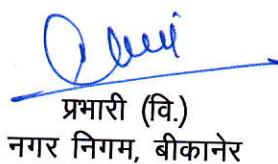 प्रभारी (वि.)
नगर निगम, बीकानेर